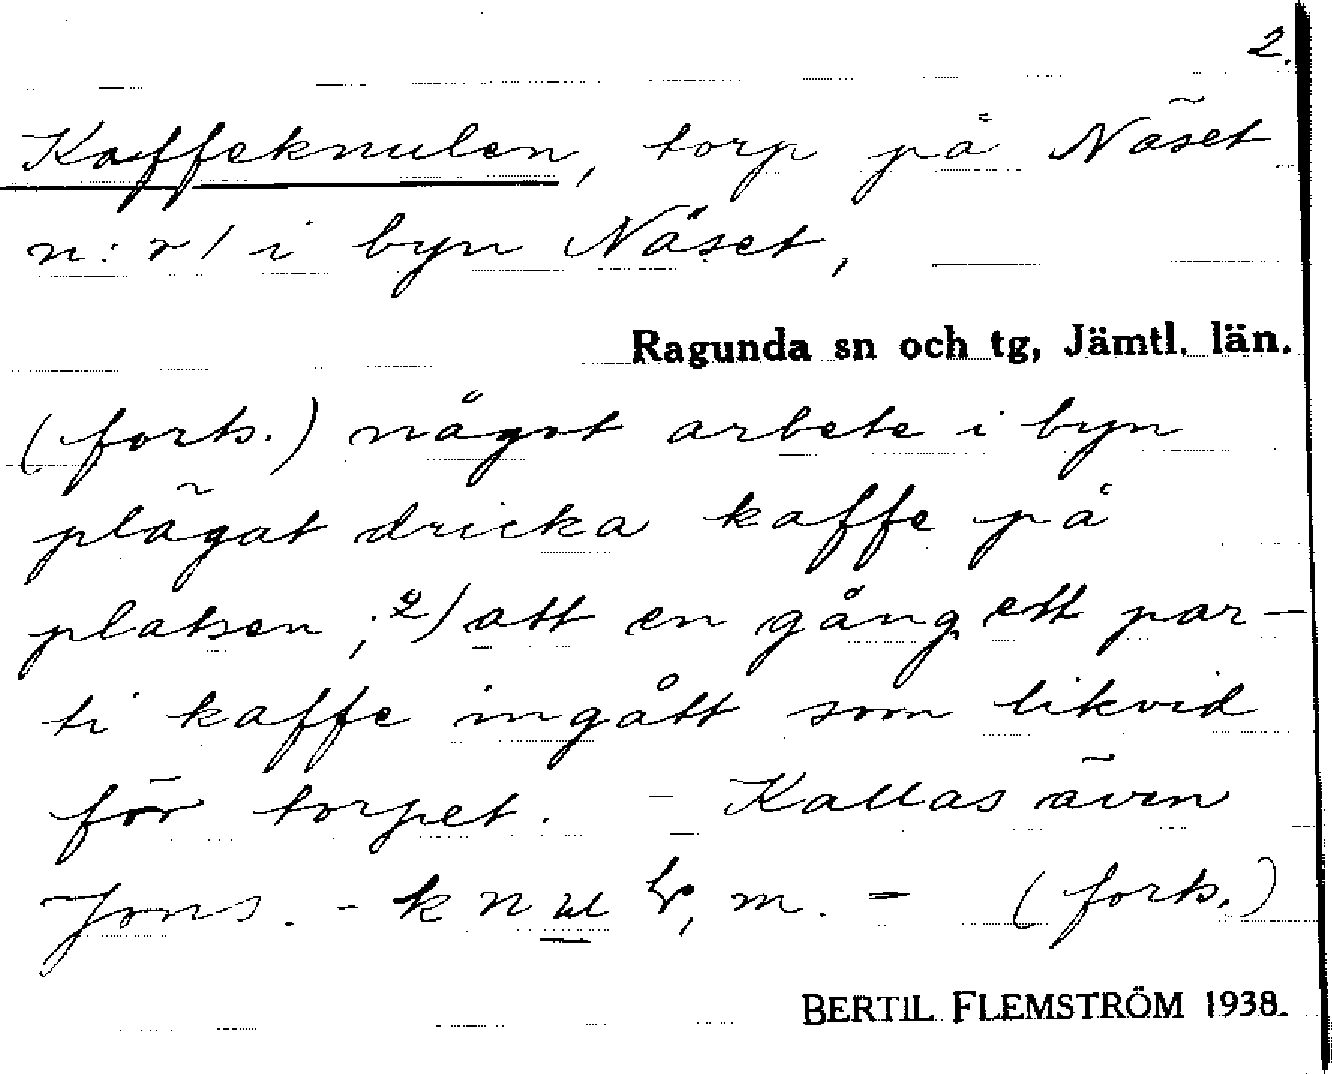 2.
Kaffeknulen, torp på Näset
n:r 1 i byn Näset,
Ragunda sn och tg, Jämtl. län.
(forts.) något arbete i byn
plägat dricka kaffe på
platsen; 2) att en gång ett par-
ti kaffe ingått som likvid
för torpet. - Kallas även
Jons. - (forts.)
BERTIL FLEMSTRÖM 1938.